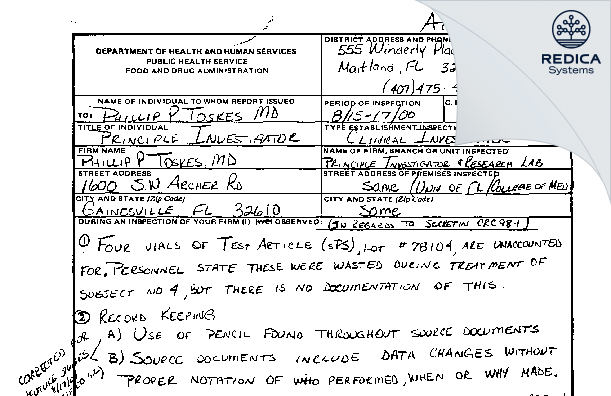 DEPARTMENT OF HEALTH AND HUMAN SERVICES
PUBLIC HEALTH SERVICE
FOOD AND DRUG ADMINISTRATION
DISTRICT ADDRESS AND PHONE
555 Winderly Pla
Maitland, FL 32
(407) 475-4
REDICA
Systems
NAME OF INDIVIDUAL TO WHOM REPORT ISSUED
TO: PHILLIP P. TOSKES MD
PERIOD OF INSPECTION
8/15-17/00
C.
TITLE OF INDIVIDUAL
PRINCIPLE INVESTIGATOR
TYPE ESTABLISHMENT INSPECT
CLINICAL INVES
FIRM NAME
PHILLIP P TOSKES, MD
NAME OF FIRM, BRANCH OR UNIT INSPECTED
PRINCIPLE INVESTIGATOR & RESEARCH LAB
STREET ADDRESS
1600 S.W. ARCHER RD
STREET ADDRESS OF PREMISES INSPECTED
SAME (UNIV OF FL/COLLEGE OF MED)
CITY AND STATE (Zip Code)
GAINESVILLE FL 32610
CITY AND STATE (Zip Code)
SAME
DURING AN INSPECTION OF YOUR FIRM (I) (WE) OBSERVED:
(IN REGARDS TO SECRETIN CRC98-1)
① FOUR VIALS OF TEST ARTICLE (SPS), LOT #78104, ARE UNACCOUNTED
FOR. PERSONNEL STATE THESE WERE WASTED DURING TREATMENT OF
SUBJECT NO 4, BUT THERE IS NO DOCUMENTATION OF THIS.
② RECORD KEEPING
A) USE OF PENCIL FOUND THROUGHOUT SOURCE DOCUMENTS
B) SOURCE DOCUMENTS INCLUDE DATA CHANGES WITHOUT
PROPER NOTATION OF WHO PERFORMED, WHEN OR WHY MADE.
CORRECTED FOR
FUTURE